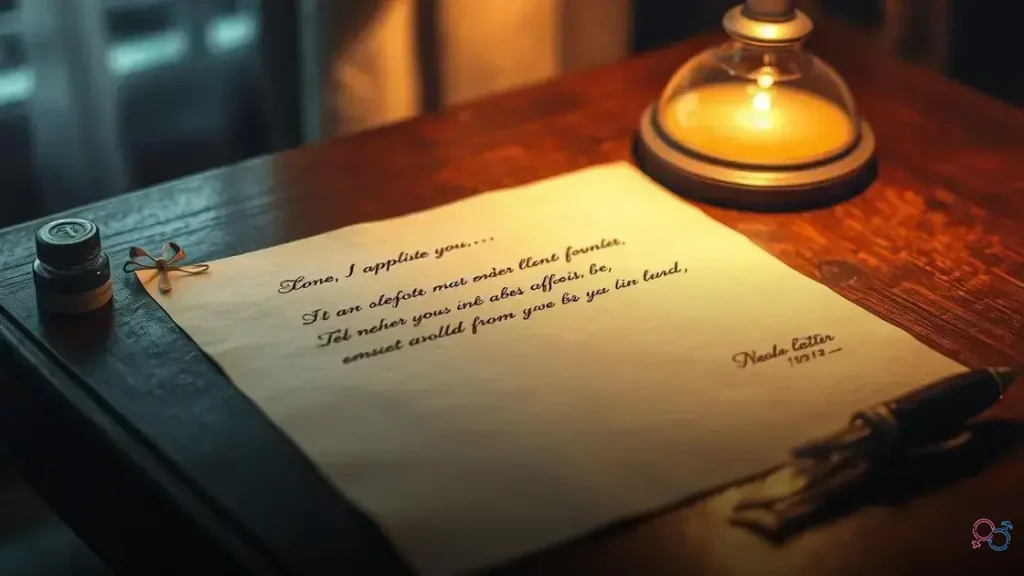 Lone, I appliste you,...
It an olefote mat order llent founter.
Tel neher yous ink abes affois, be,
emsiet avolld from ywe bs ya lin lund,
Neola Cetter